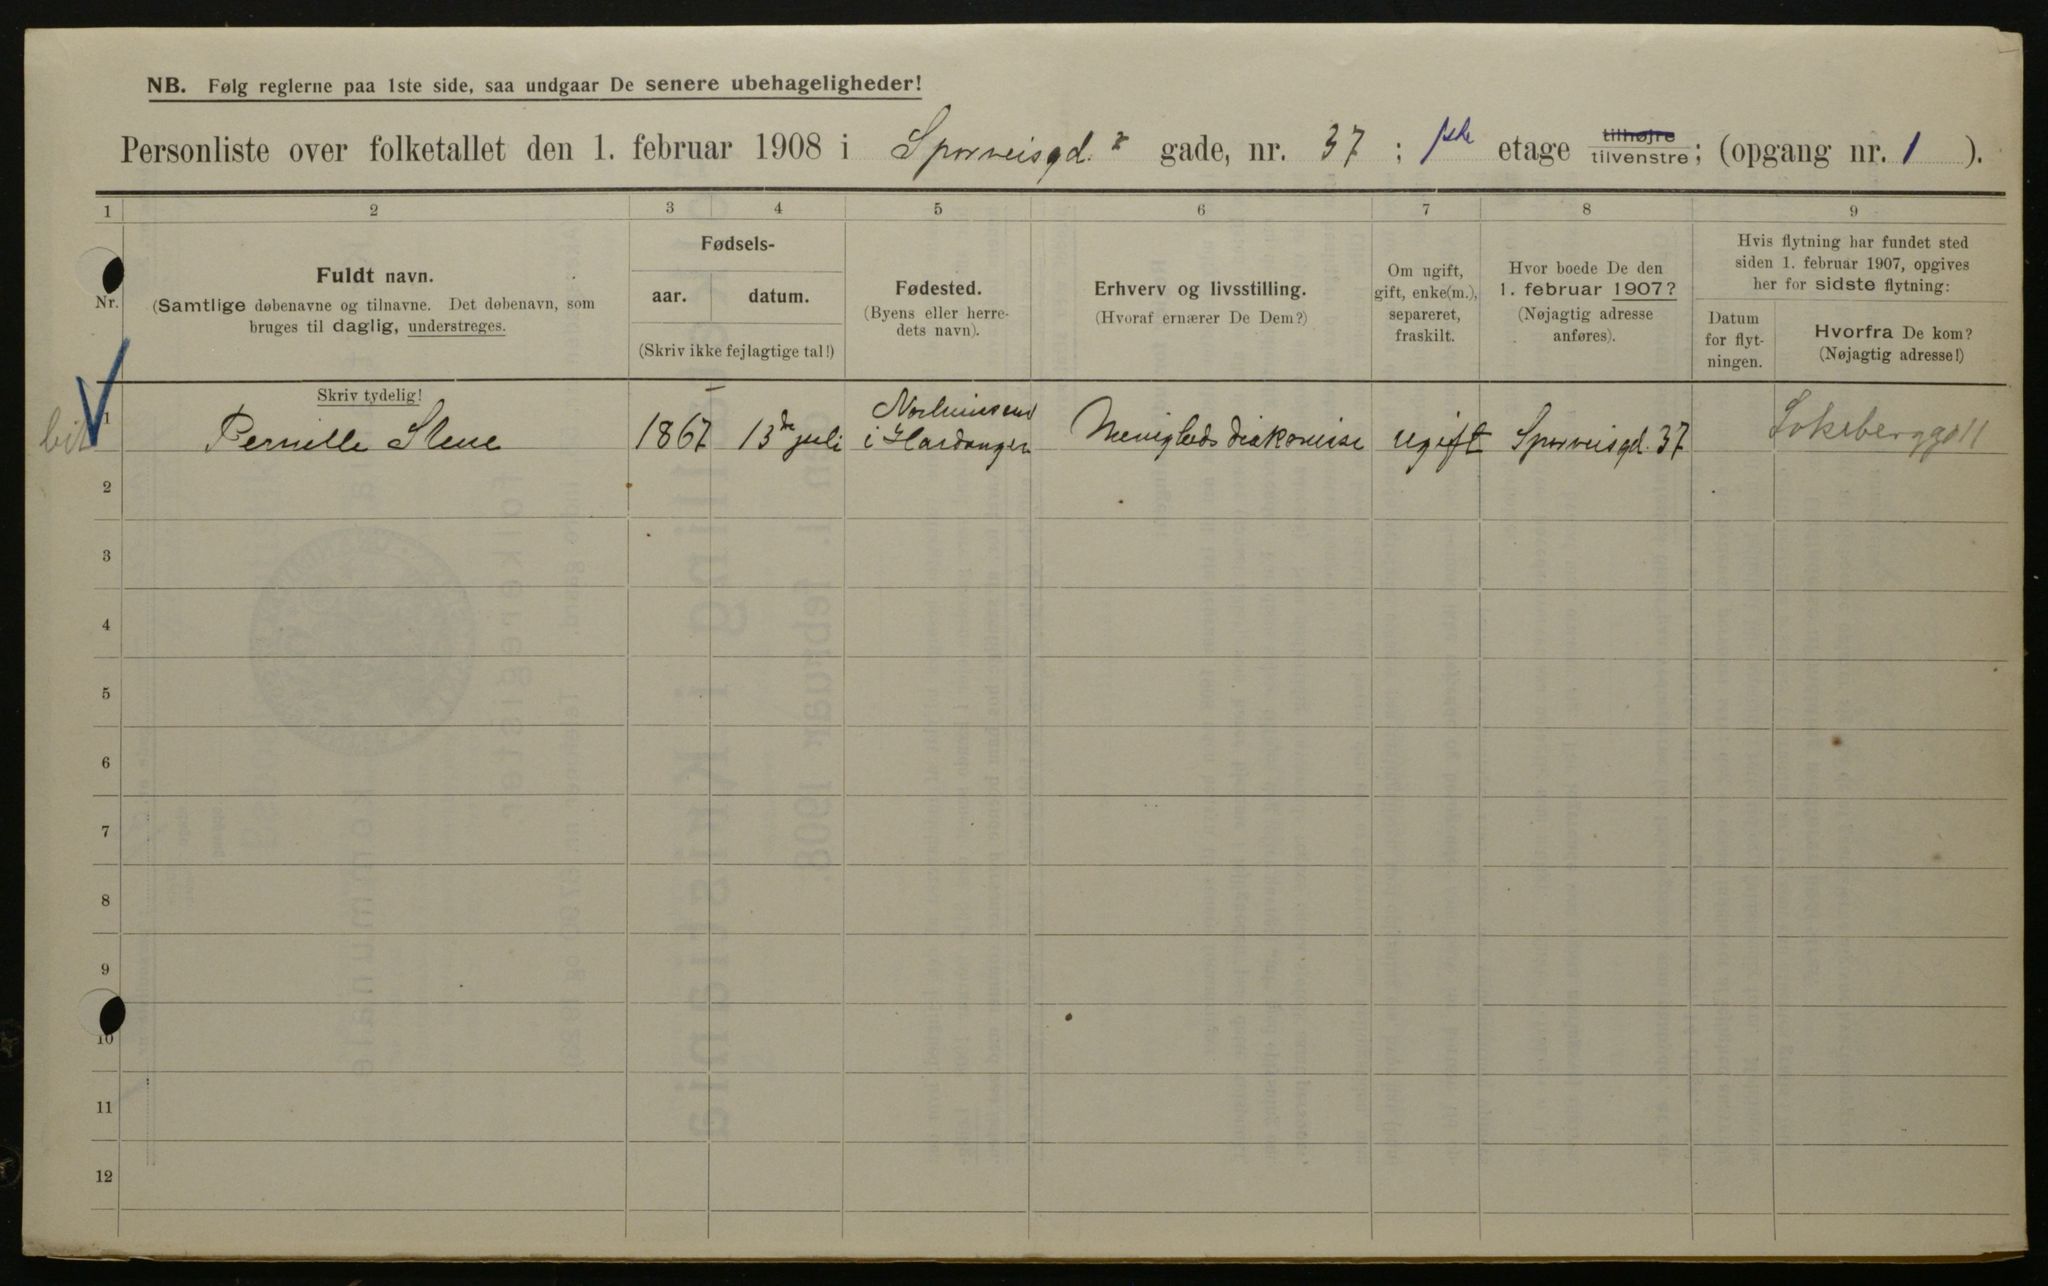 NB. Følg reglerne paa 1ste side, saa undgaar De senere ubehageligheder!
Personliste over folketallet den 1. februar 1908 i Sporveisgd. gade, nr. 37; 1ste etage tilhøjre tilvenstre; (opgang nr. 1).
1 2 3 4 5 6 7 8 9
Nr.
Fuldt navn.
(Samtlige døbenavne og tilnavne. Det døbenavn, som
bruges til daglig, understreges.
Fødsels-
aar. datum.
(Skriv ikke fejlagtige tal!)
Fødested.
(Byens eller herre-
dets navn).
Erhverv og livsstilling.
(Hvoraf ernærer De Dem?)
Om ugift,
gift, enke(m.),
separeret,
fraskilt.
Hvor boede De den
1. februar 1907?
(Nøjagtig adresse
anføres).
Hvis flytning har fundet sted
siden 1. februar 1907, opgives
her for sidste flytning:
Datum
for flyt-
ningen.
Hvorfra De kom?
(Nøjagtig adresse!)
Skriv tydelig!
1 Pernille Stene 1867 13de juli i Hardanger Menighedsdiakonisse ugift Sporveisgd. 37
2
3
4
5
6
7
8
9
10
11
12